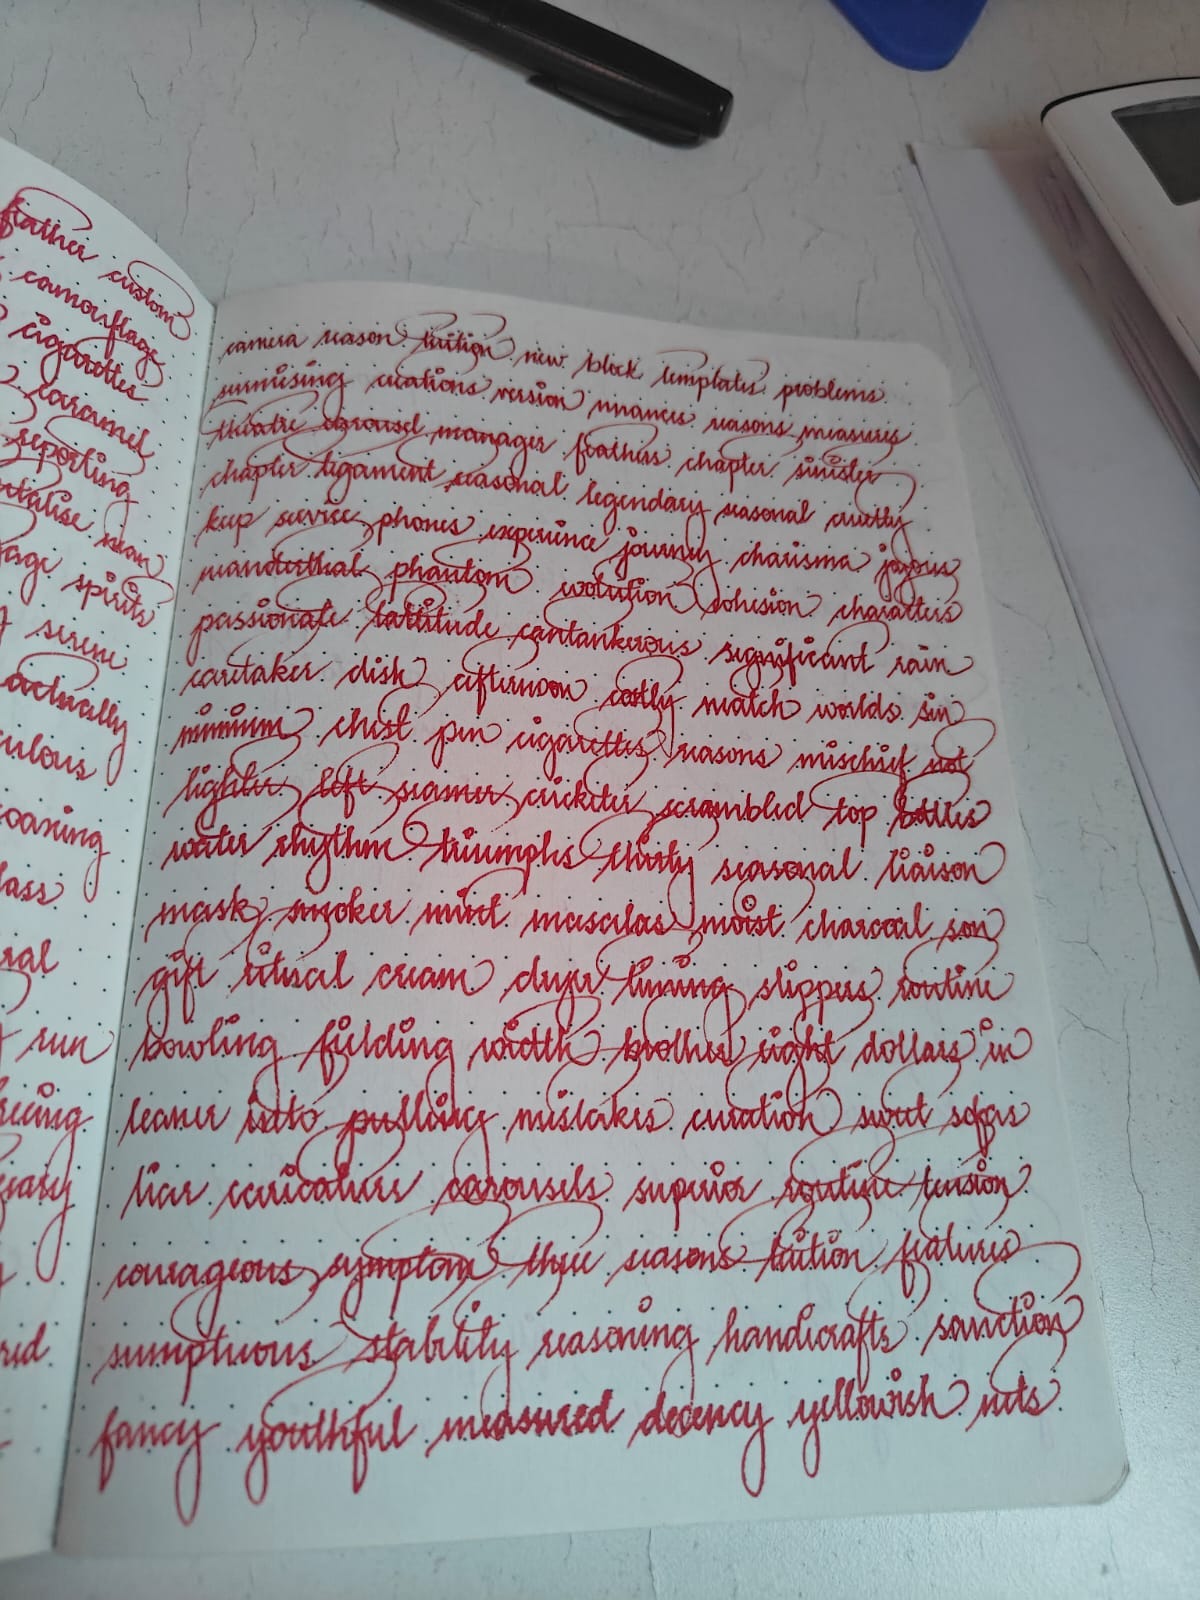 feather custom
camouflage
cigarettes
caramel
reporting
mean
spirits
serene
actually
run
camera reason tuition new block templates problems
summising creations version nuances reasons measures
theatre carousel manager feathers chapter sinister
chapter ligament seasonal legendary seasonal cruelly
keep service phones experience journey charisma joyous
neanderthal phantom evolution cohesion characters
passionate lattitude cantankerous significant rain
caretaker disk afternoon costly match worlds sin
minimum chest pen cigarettes reasons mischief not
lighter left seamer cricketer scrambled top battles
water rhythm triumphs thirty seasonal liaison
mask smoker mint masalas moist charcoal son
gift ritual cream dryer timing slippers routine
bowling fielding width brother eight dollars in
leaner into pulling mistakes curation sweet sofas
liar caricature carousels superior routine tension
courageous symptom three reasons tuition features
sumptuous stability reasoning handicrafts sanction
fancy youthful measured decency yellowish nuts